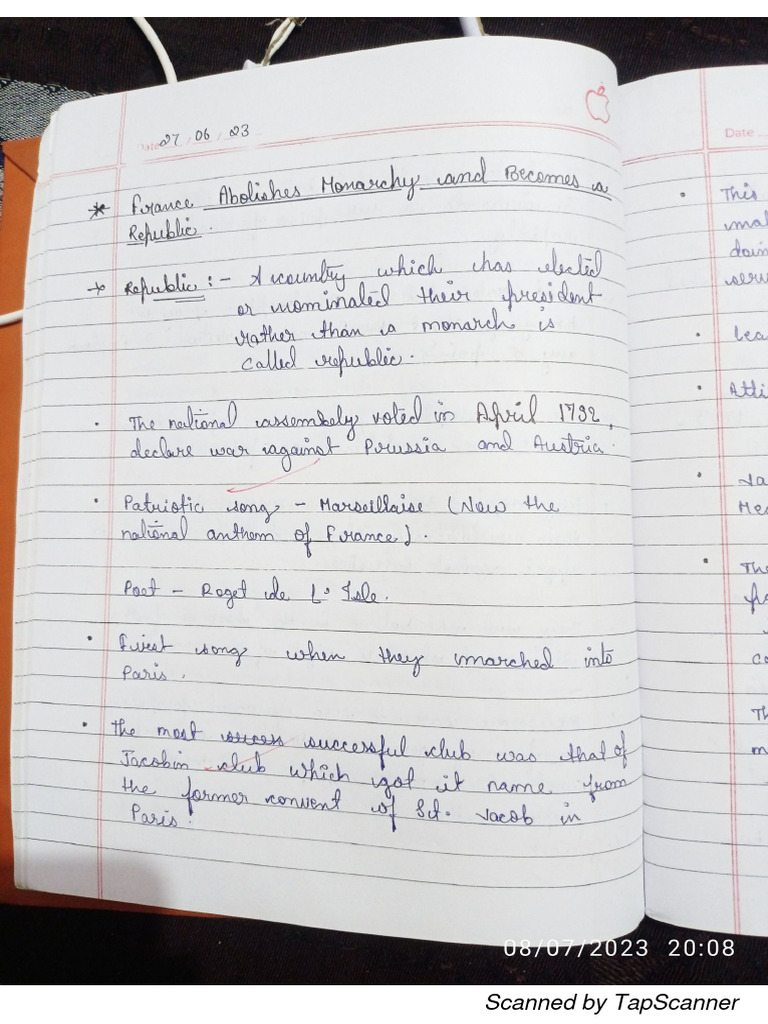 Date 27 / 06 / 23
* France Abolishes Monarchy and Becomes a
Republic.
→ Republic :- A country which has elected
or nominated their president
rather than a monarch is
called republic.
• The national assembly voted in April 1792,
declare war against Prussia and Austria.
• Patriotic song - Marseillaise (Now the
national anthem of France).
Poet - Roget de L' Isle.
• First song when they marched into
Paris.
• The most success successful club was that of
Jacobin club which got it name from
the former convent of St. Jacob in
Paris.
Date
• This
• Lea
• Atti
• Ja
Me
• The
Th
08/07/2023 20:08
Scanned by TapScanner